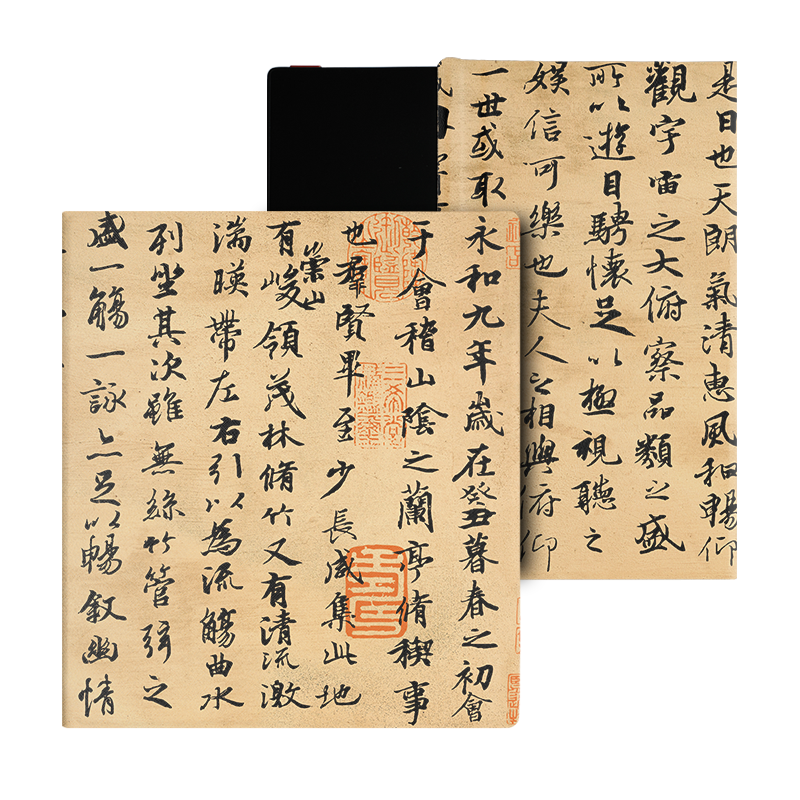 永和九年歲在癸丑暮春之初會
于會稽山陰之蘭亭脩稧事
也羣賢畢至少長咸集此地
有崇山峻領茂林脩竹又有清流激
湍暎帶左右引以為流觴曲水
列坐其次雖無絲竹管弦之
盛一觴一詠亦足以暢敘幽情
是日也天朗氣清惠風和暢仰
觀宇宙之大俯察品類之盛
所以遊目騁懷足以極視聽之
娛信可樂也夫人之相與俯仰
一世或取